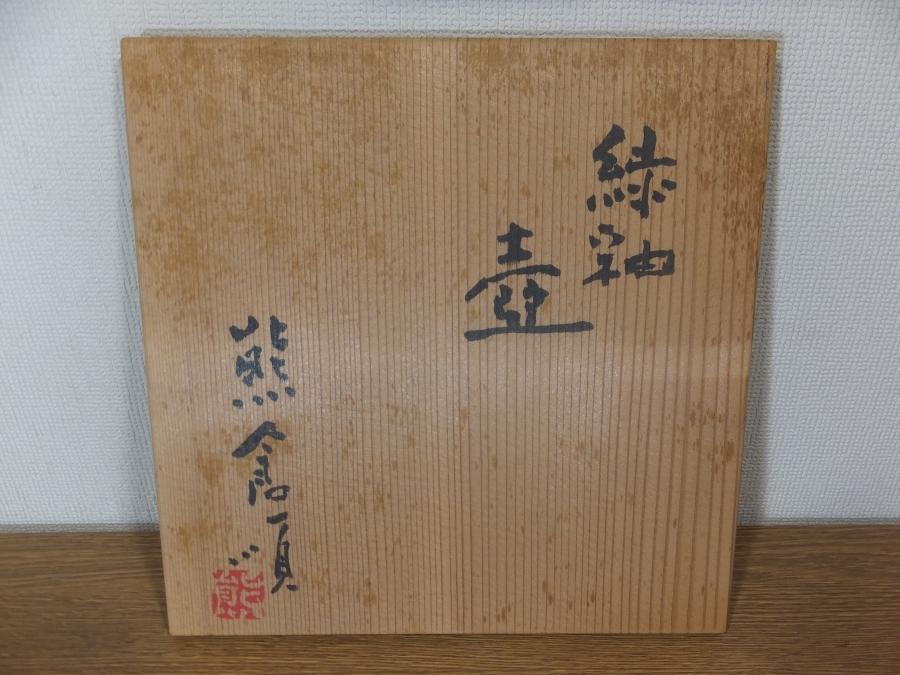 緑釉
壺
熊倉順